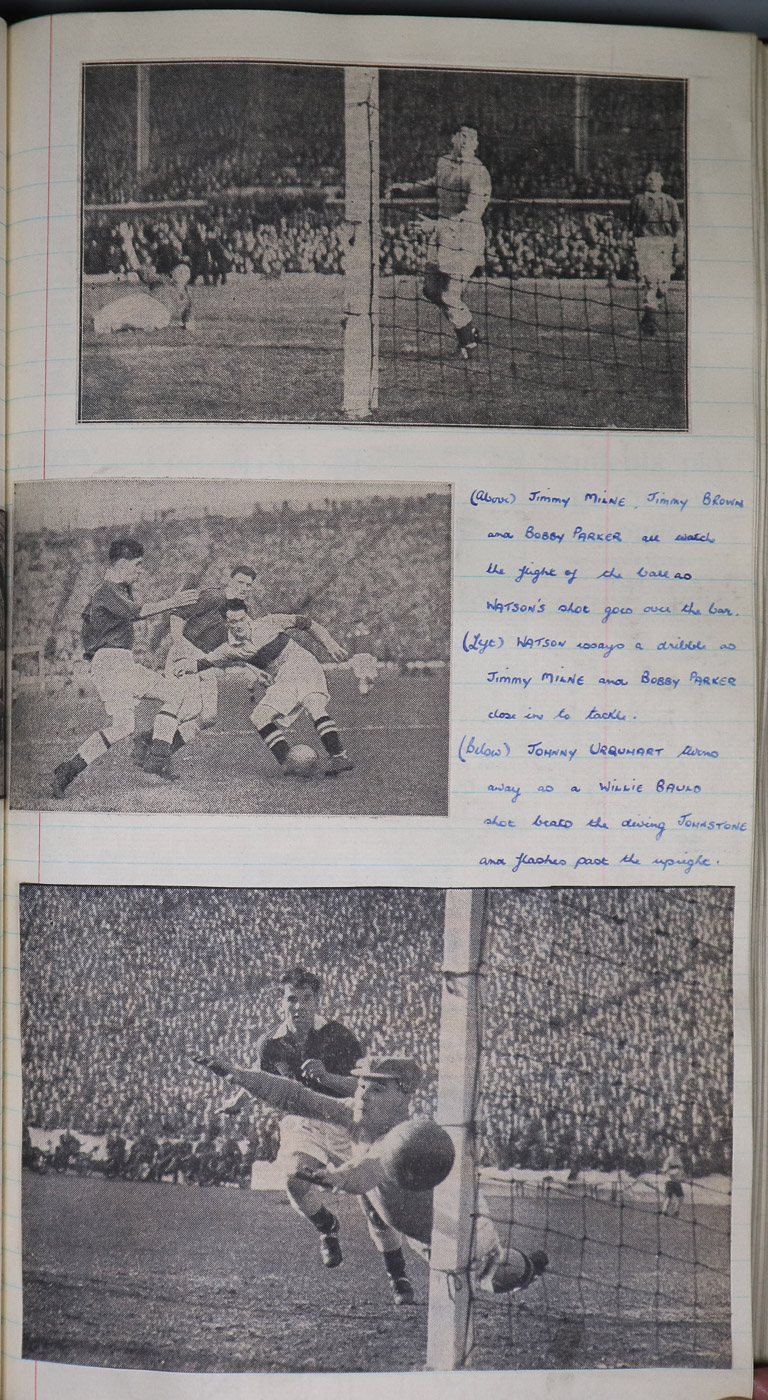 (Above) Jimmy MILNE, Jimmy BROWN
and BOBBY PARKER all watch
the flight of the ball as
WATSON'S shot goes over the bar.
(Left) WATSON essays a dribble as
Jimmy MILNE and BOBBY PARKER
close in to tackle.
(Below) JOHNNY URQUHART turns
away as a WILLIE BAULD
shot beats the diving JOHNSTONE
and flashes past the upright.